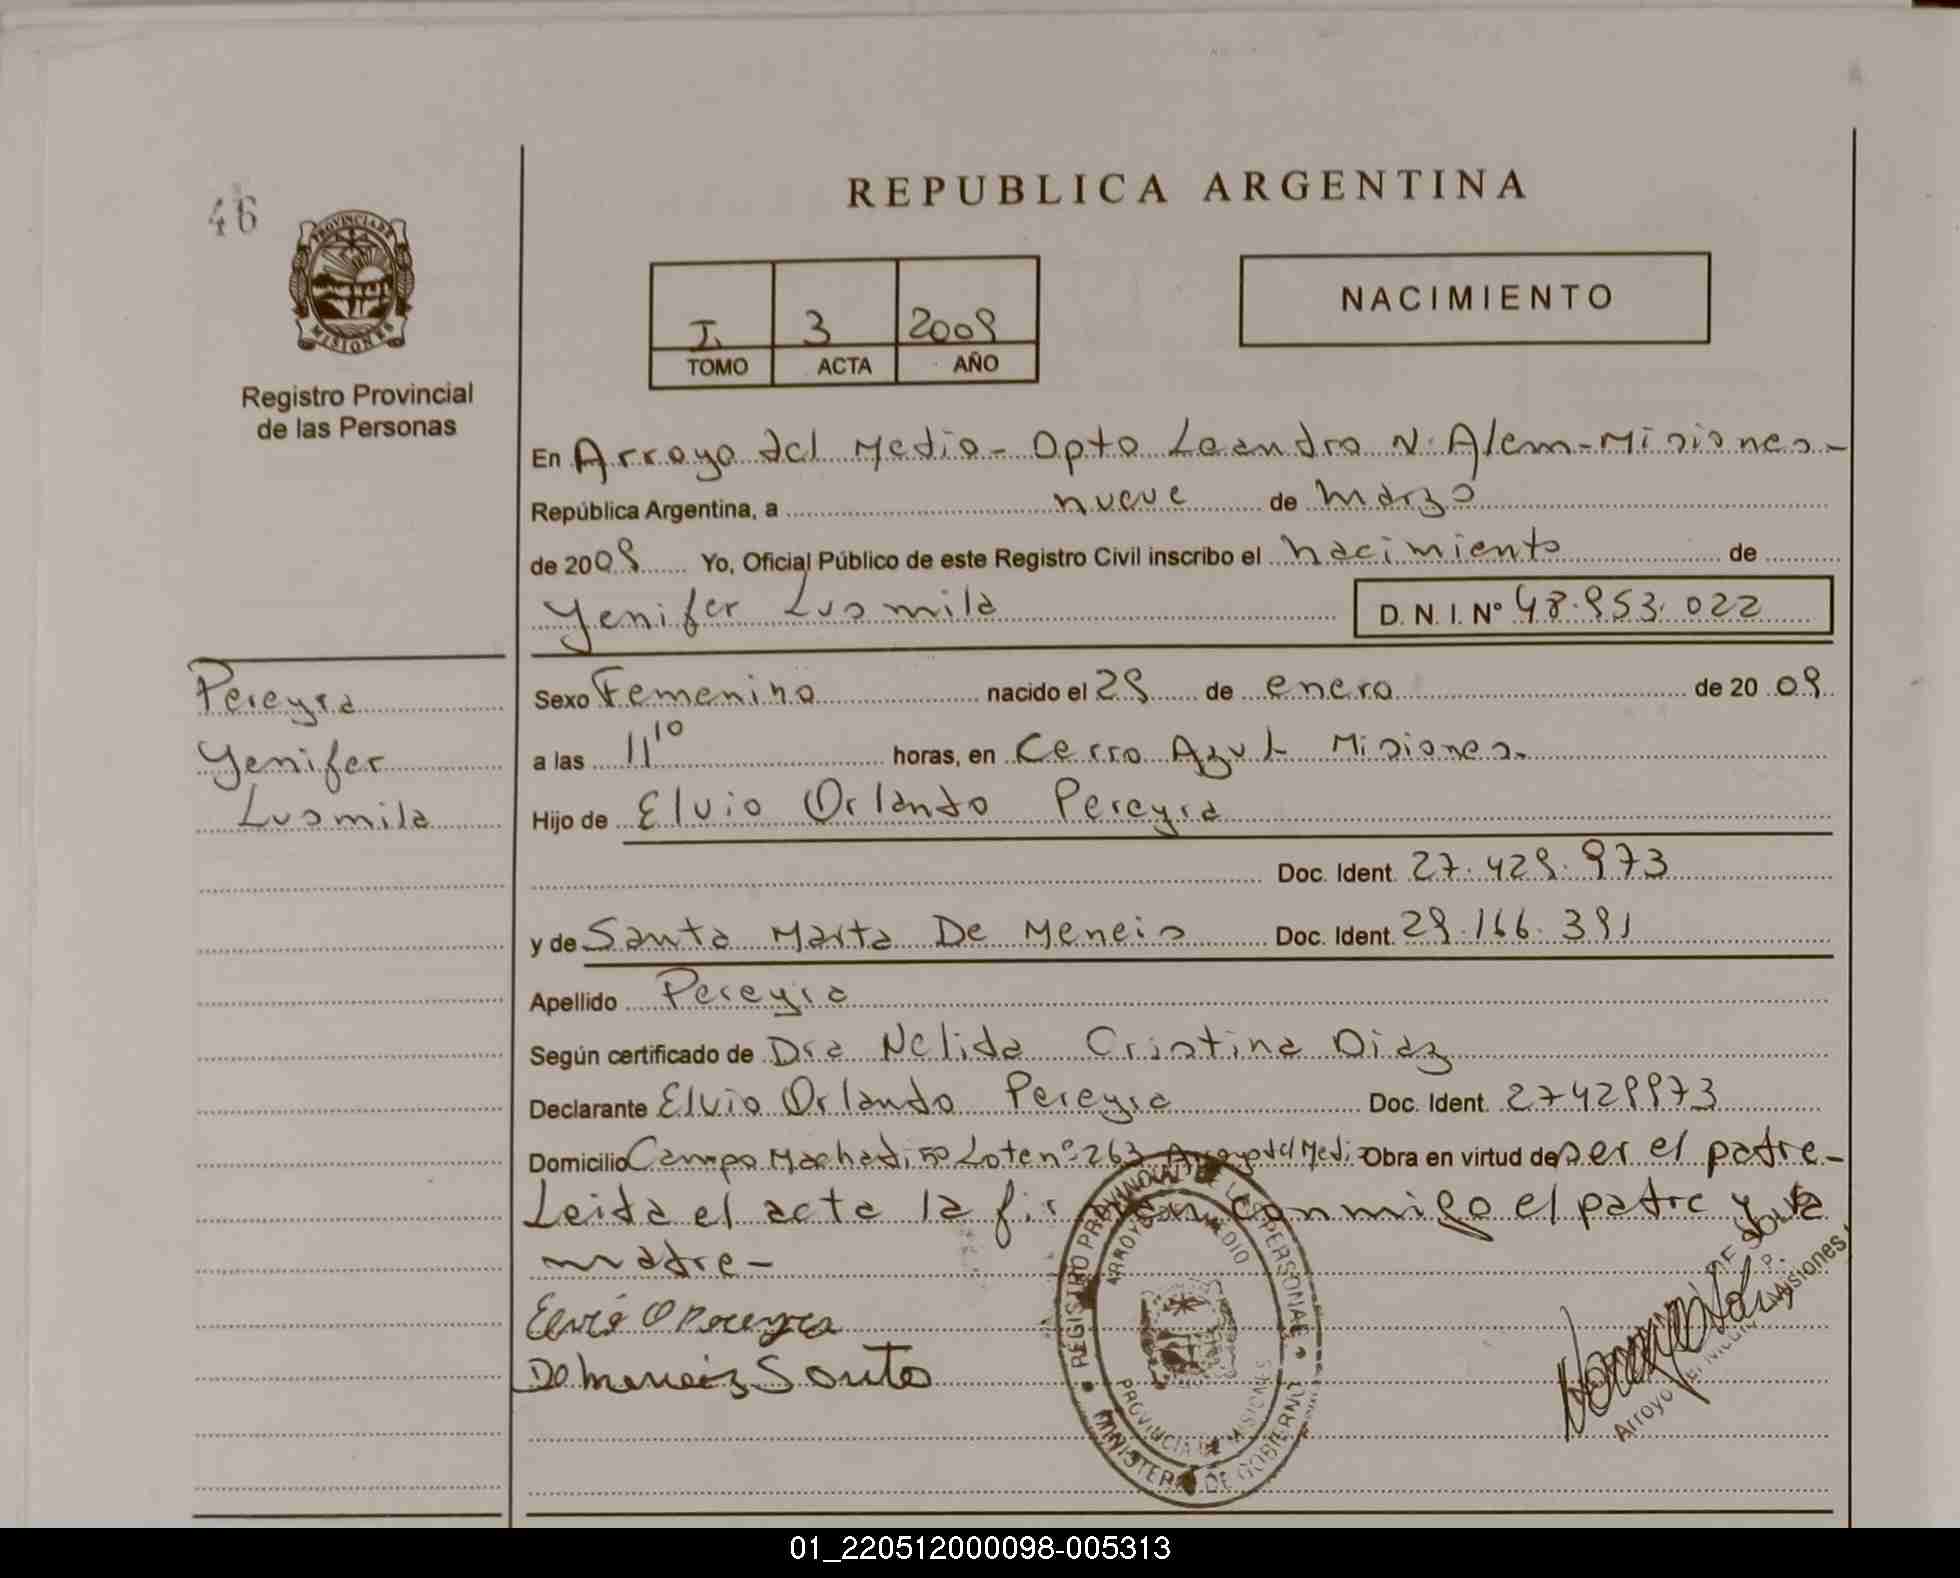 REPUBLICA ARGENTINA
46
PROVINCIA DE
MISIONES
Registro Provincial
de las Personas
I. 3 2009
TOMO ACTA AÑO
NACIMIENTO
En Arroyo del Medio - Dpto Leandro N. Alem - Misiones. -
República Argentina, a nueve de marzo
de 2009 Yo, Oficial Público de este Registro Civil inscribo el nacimiento de
Yenifer Lusmila D. N. I. Nº 48.953.022
Pereyra
Yenifer
Lusmila
Sexo Femenino nacido el 29 de enero de 20 09
a las 11 10 horas, en Cerro Azul Misiones.
Hijo de Elvio Orlando Pereyra
Doc. Ident. 27.429.973
y de Santa Marta De Meneis Doc. Ident. 29.166.391
Apellido Pereyra
Según certificado de Dra Nelida Cristina Diaz
Declarante Elvio Orlando Pereyra Doc. Ident. 27429973
Domicilio Campo Lote nº 263 Arroyo del Medio Obra en virtud de ser el padre -
Leida el acta la firman conmigo el padre y la
madre -
Elvio O Pereyra
De Meneis Santa
REGISTRO PROVINCIAL DE LAS PERSONAS
ARROYO DEL MEDIO
PROVINCIA DE MISIONES
MINISTERIO DE GOBIERNO
Arroyo del Medio Misiones
01_220512000098-005313